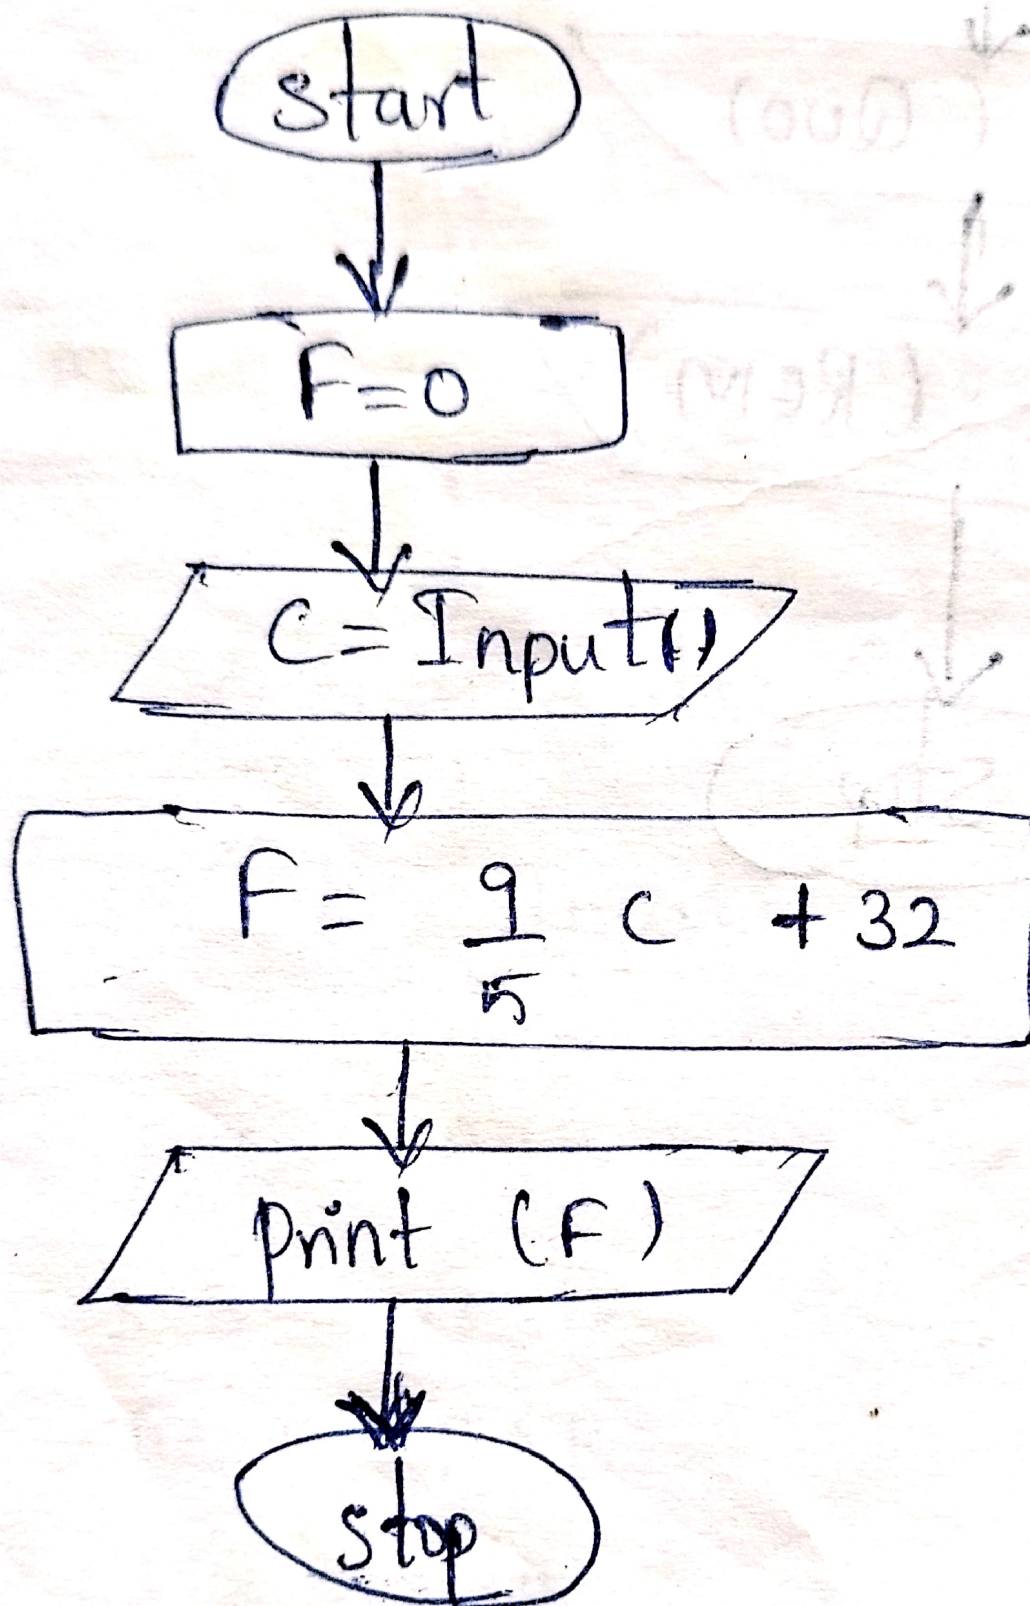 start
F=0
C=Input()
F= 9/5 C +32
print (F)
stop